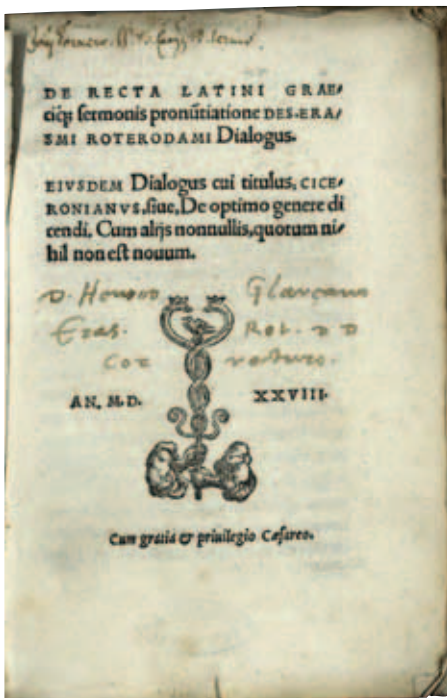 DE RECTA LATINI GRAE⸗
ciq́; sermonis pronũtiatione DES. ERA⸗
SMI ROTERODAMI Dialogus.
EIVSDEM Dialogus cui titulus, CICE⸗
RONIANVS, siue, De optimo genere di
cendi. Cum alijs nonnullis, quorum ni⸗
hil non est nouum.
D. Henrico Glareano
Eras. Rot. D D
AN. M. D. XXVIII.
Cum gratia & priuilegio Cæsareo.